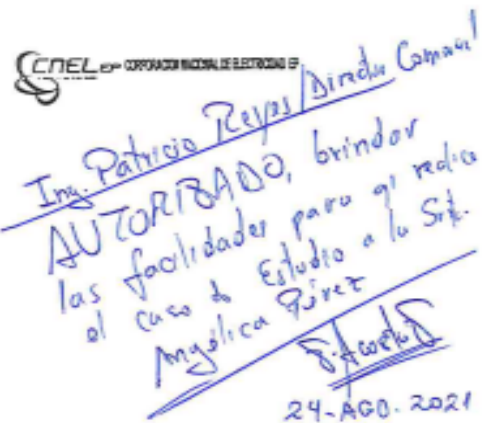 CNEL EP CORPORACION NACIONAL DE ELECTRICIDAD EP
Ing. Patricio Reyes / Director Comercial
AUTORIZADO, brindar
las facilidades para q' realice
el caso de Estudio a la Srta.
Angélica Pérez
24-AGO-2021